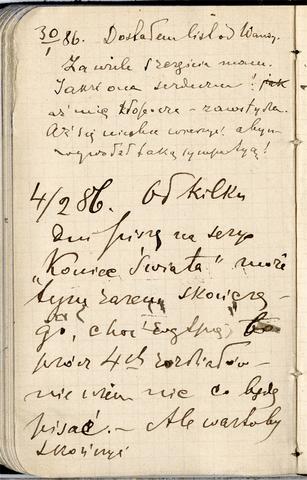 30/1 86. Dostałem list od Wandy.
Za wiele szczęścia mam.
Jakże ona serdeczna! jak
aż mię – zawstydza.
Aż się nie chce wierzyć abym
taką sympatyą!
4/2 86. Od kilku
Dni piszę na seryo
"Koniec Świata" może
tym razem skończę
go, choć wątpię, bo
prócz 4ch rozdziałów
nie wiem nic co będę
pisać. – Ale wartoby
skończyć